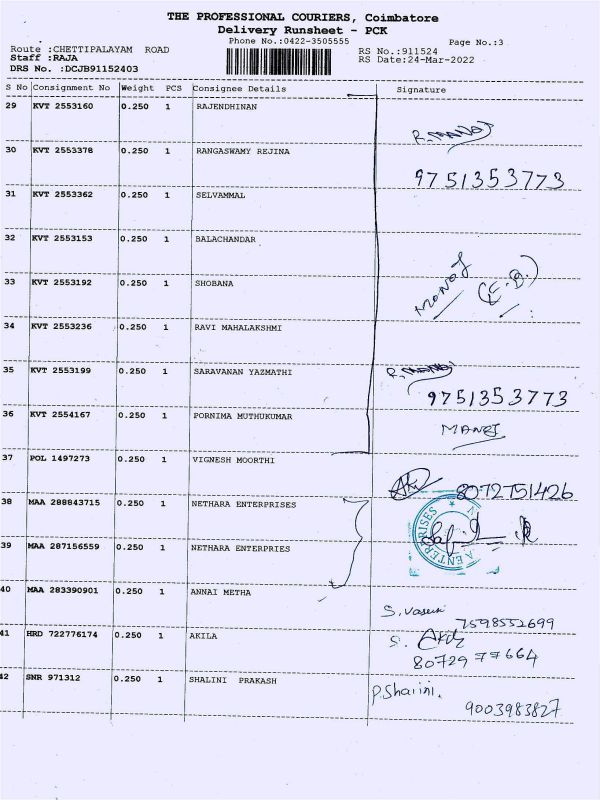 THE PROFESSIONAL COURIERS, Coimbatore
Delivery Runsheet - PCK
Phone No.:0422-3505555
Page No.:3
Route :CHETTIPALAYAM ROAD
RS No.:911524
Staff :RAJA
RS Date:24-Mar-2022
DRS No. :DCJB91152403
S No Consignment No Weight PCS Consignee Details Signature
29 KVT 2553160 0.250 1 RAJENDHINAN
R. MANOJ
30 KVT 2553378 0.250 1 RANGASWAMY REJINA
9751353773
31 KVT 2553362 0.250 1 SELVAMMAL
32 KVT 2553153 0.250 1 BALACHANDAR
33 KVT 2553192 0.250 1 SHOBANA
MANOJ (E.B.)
34 KVT 2553236 0.250 1 RAVI MAHALAKSHMI
35 KVT 2553199 0.250 1 SARAVANAN YAZMATHI
R. MANOJ
9751353773
36 KVT 2554167 0.250 1 PORNIMA MUTHUKUMAR
MANOJ
37 POL 1497273 0.250 1 VIGNESH MOORTHI
8072751426
38 MAA 288843715 0.250 1 NETHARA ENTERPRISES
39 MAA 287156559 0.250 1 NETHARA ENTERPRIES
40 MAA 283390901 0.250 1 ANNAI METHA
S. Vasuki
7598552699
41 HRD 722776174 0.250 1 AKILA
S. Akila
8072977664
42 SNR 971312 0.250 1 SHALINI PRAKASH
P. Shalini.
9003983827